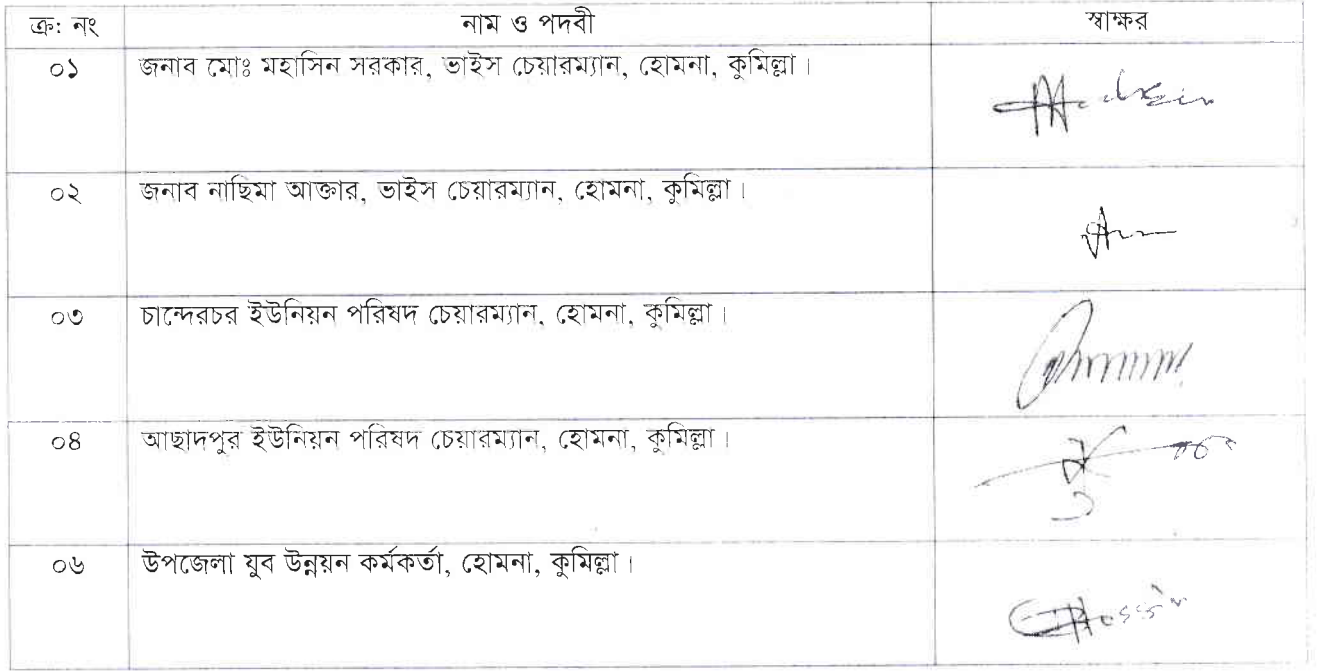 ক্র: নং নাম ও পদবী স্বাক্ষর
০১ জনাব মোঃ মহাসিন সরকার, ভাইস চেয়ারম্যান, হোমনা, কুমিল্লা।
০২ জনাব নাছিমা আক্তার, ভাইস চেয়ারম্যান, হোমনা, কুমিল্লা।
০৩ চান্দেরচর ইউনিয়ন পরিষদ চেয়ারম্যান, হোমনা, কুমিল্লা।
০৪ আছাদপুর ইউনিয়ন পরিষদ চেয়ারম্যান, হোমনা, কুমিল্লা।
০৬ উপজেলা যুব উন্নয়ন কর্মকর্তা, হোমনা, কুমিল্লা।